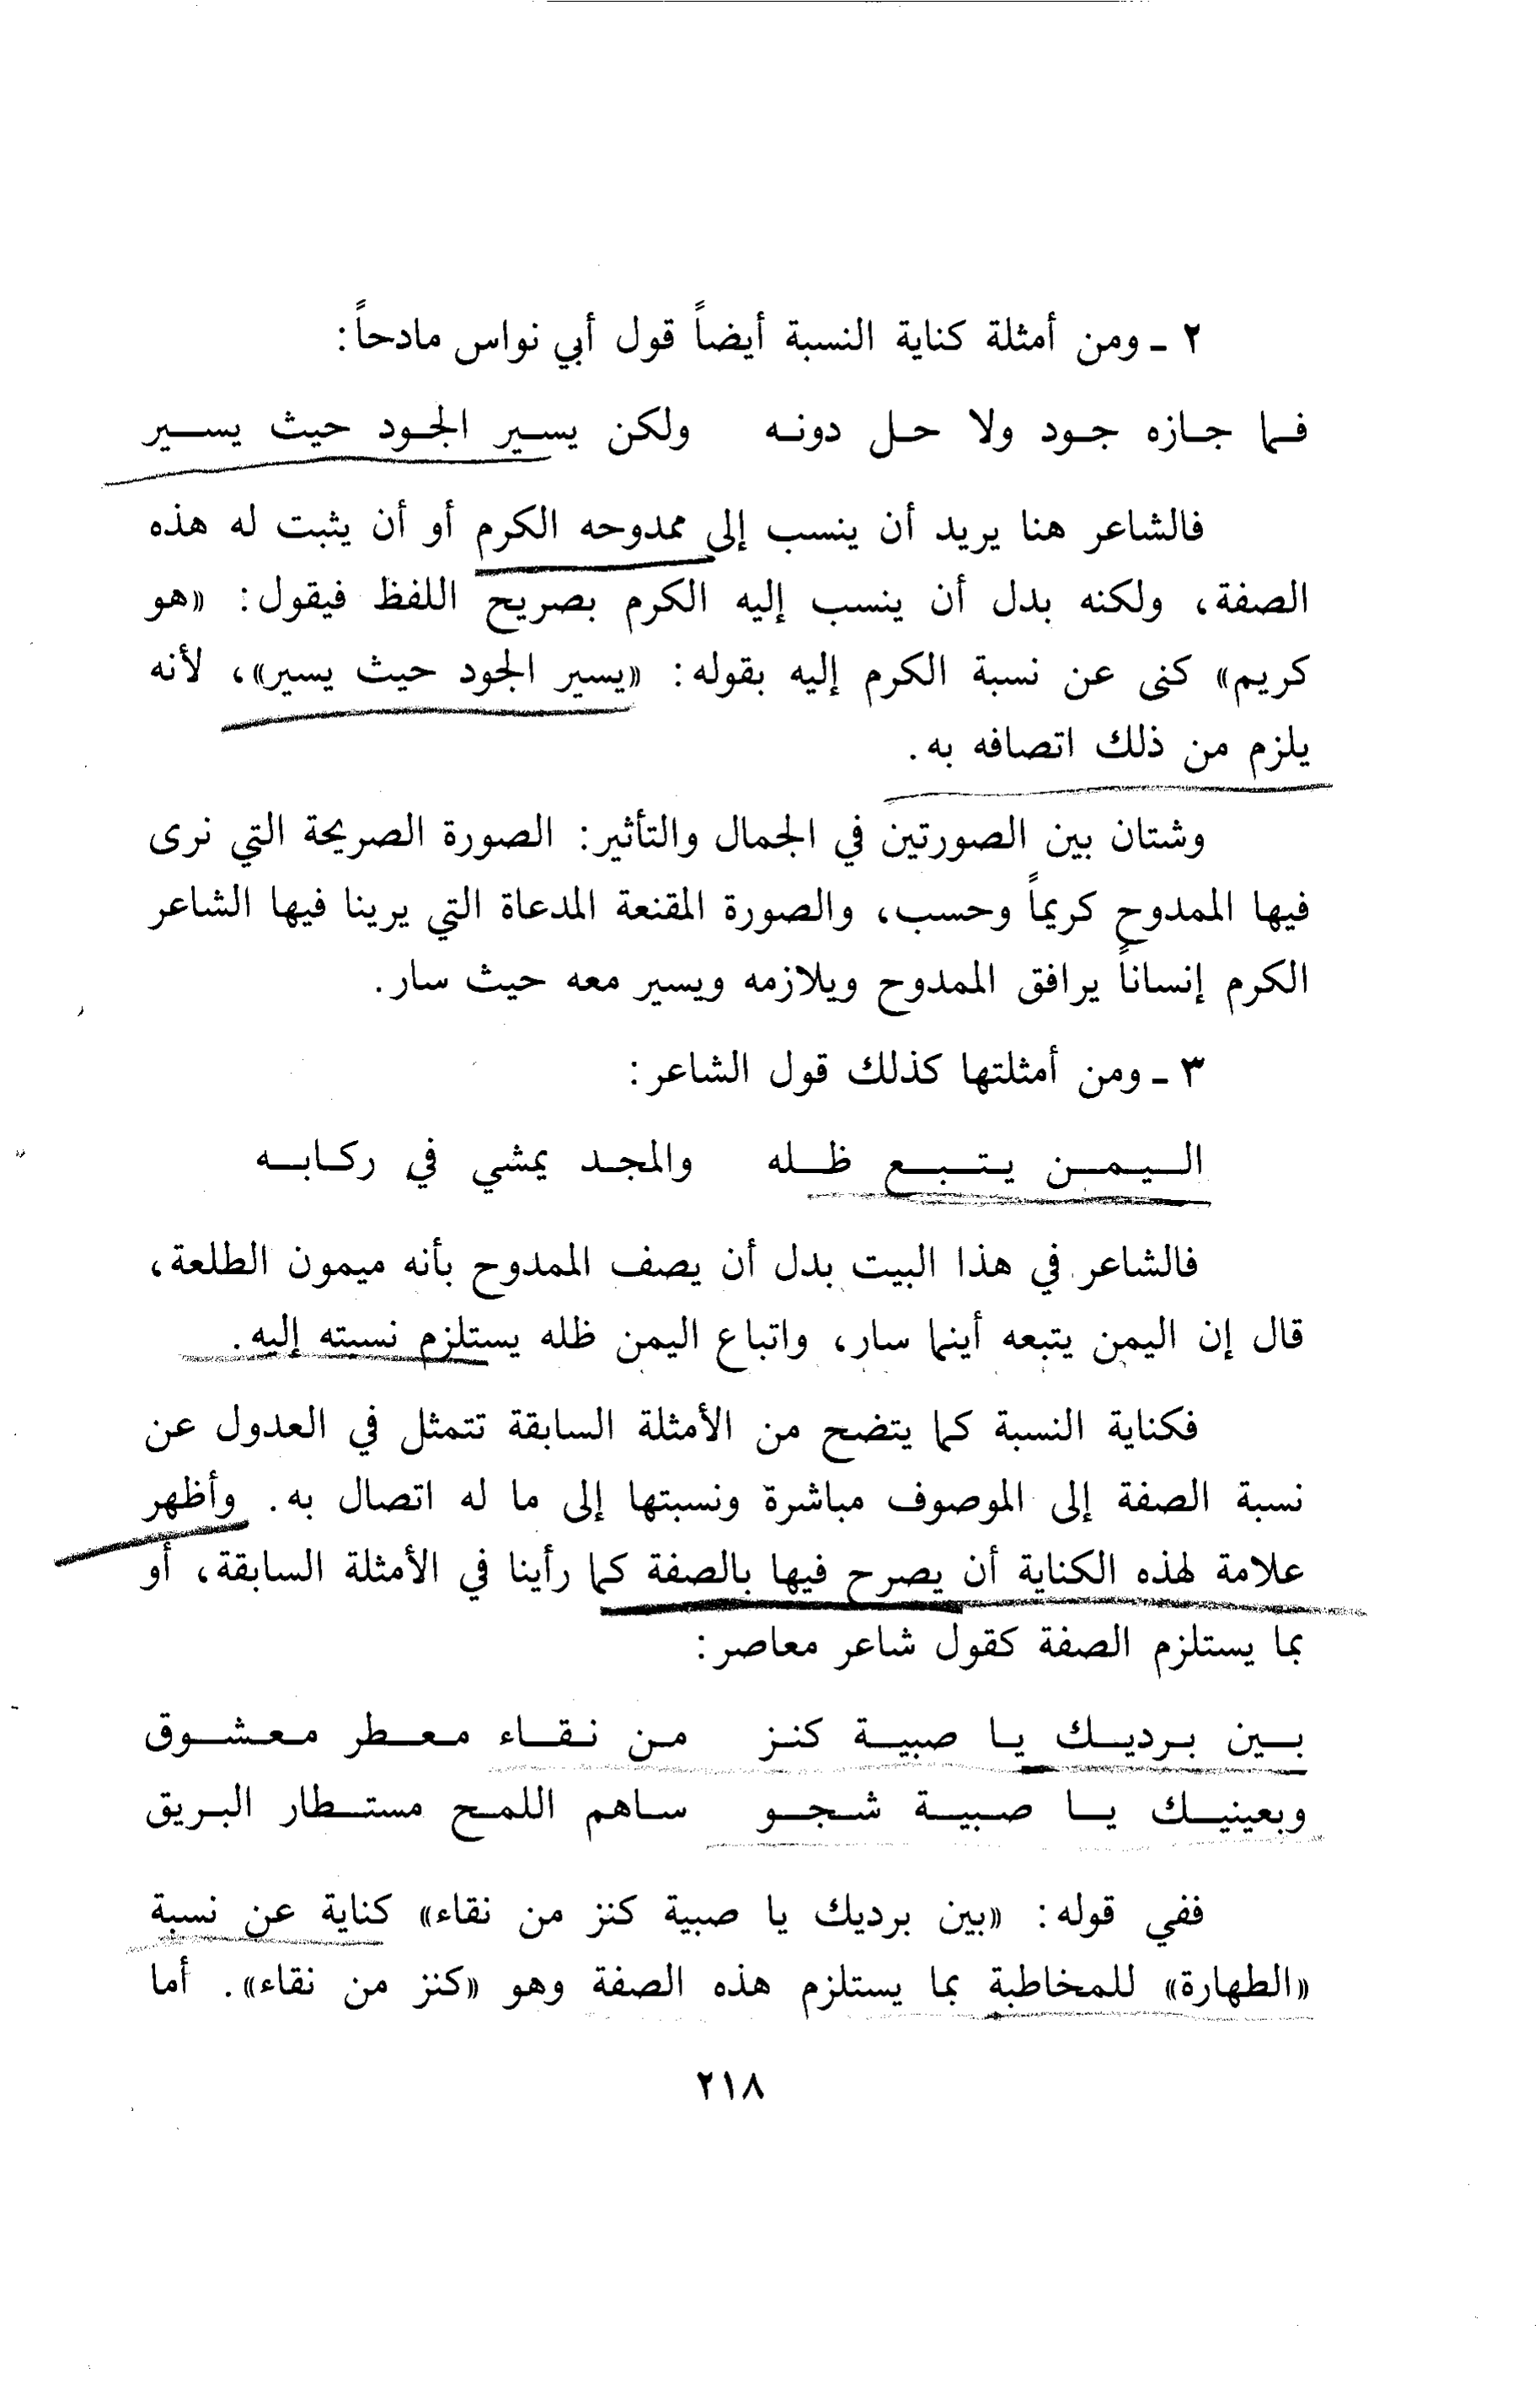 ٢ ـ ومن أمثلة كناية النسبة أيضاً قول أبي نواس مادحاً:
فـما جـازه جـود ولا حـل دونـه ولكن يسـير الجـود حيث يســير
فالشاعر هنا يريد أن ينسب إلى ممدوحه الكرم أو أن يثبت له هذه
الصفة، ولكنه بدل أن ينسب إليه الكرم بصريح اللفظ فيقول: «هو
كريم» كنى عن نسبة الكرم إليه بقوله: «يسير الجود حيث يسير»، لأنه
يلزم من ذلك اتصافه به.
وشتان بين الصورتين في الجمال والتأثير: الصورة الصريحة التي نرى
فيها الممدوح كريماً وحسب، والصورة المقنعة المدعاة التي يرينا فيها الشاعر
الكرم إنساناً يرافق الممدوح ويلازمه ويسير معه حيث سار.
٣ ـ ومن أمثلتها كذلك قول الشاعر:
الـيـمـن يـتـبـع ظـله والمجـد يمشي في ركـابـه
فالشاعر في هذا البيت بدل أن يصف الممدوح بأنه ميمون الطلعة،
قال إن اليمن يتبعه أينما سار، واتباع اليمن ظله يستلزم نسبته إليه.
فكناية النسبة كما يتضح من الأمثلة السابقة تتمثل في العدول عن
نسبة الصفة إلى الموصوف مباشرة ونسبتها إلى ما له اتصال به. وأظهر
علامة لهذه الكناية أن يصرح فيها بالصفة كما رأينا في الأمثلة السابقة، أو
بما يستلزم الصفة كقول شاعر معاصر:
بـين بـرديـك يـا صبيـة كنـز مـن نـقـاء مـعـطر مـعـشـوق
وبعينيـك يـا صـبيـة شـجـو سـاهم اللمـح مستـطار البـريق
ففي قوله: «بين برديك يا صبية كنز من نقاء» كناية عن نسبة
«الطهارة» للمخاطبة بما يستلزم هذه الصفة وهو «كنز من نقاء». أما
٢١٨